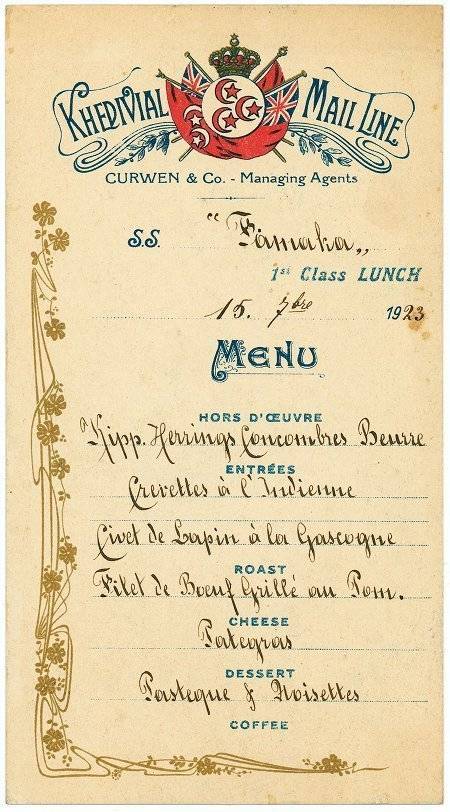 KHEDIVIAL MAIL LINE
CURWEN & Co. - Managing Agents
S.S. "Famaka„
1st Class LUNCH
15. 7bre 1923
MENU
HORS D'ŒUVRE
Kipp. Herrings Concombres Beurre
ENTRÉES
Crevettes à l'Indienne
Civet de Lapin à la Gascogne
ROAST
Filet de Bœuf Grillé au Pom.
CHEESE
Pategras
DESSERT
Pasteque & Noisettes
COFFEE